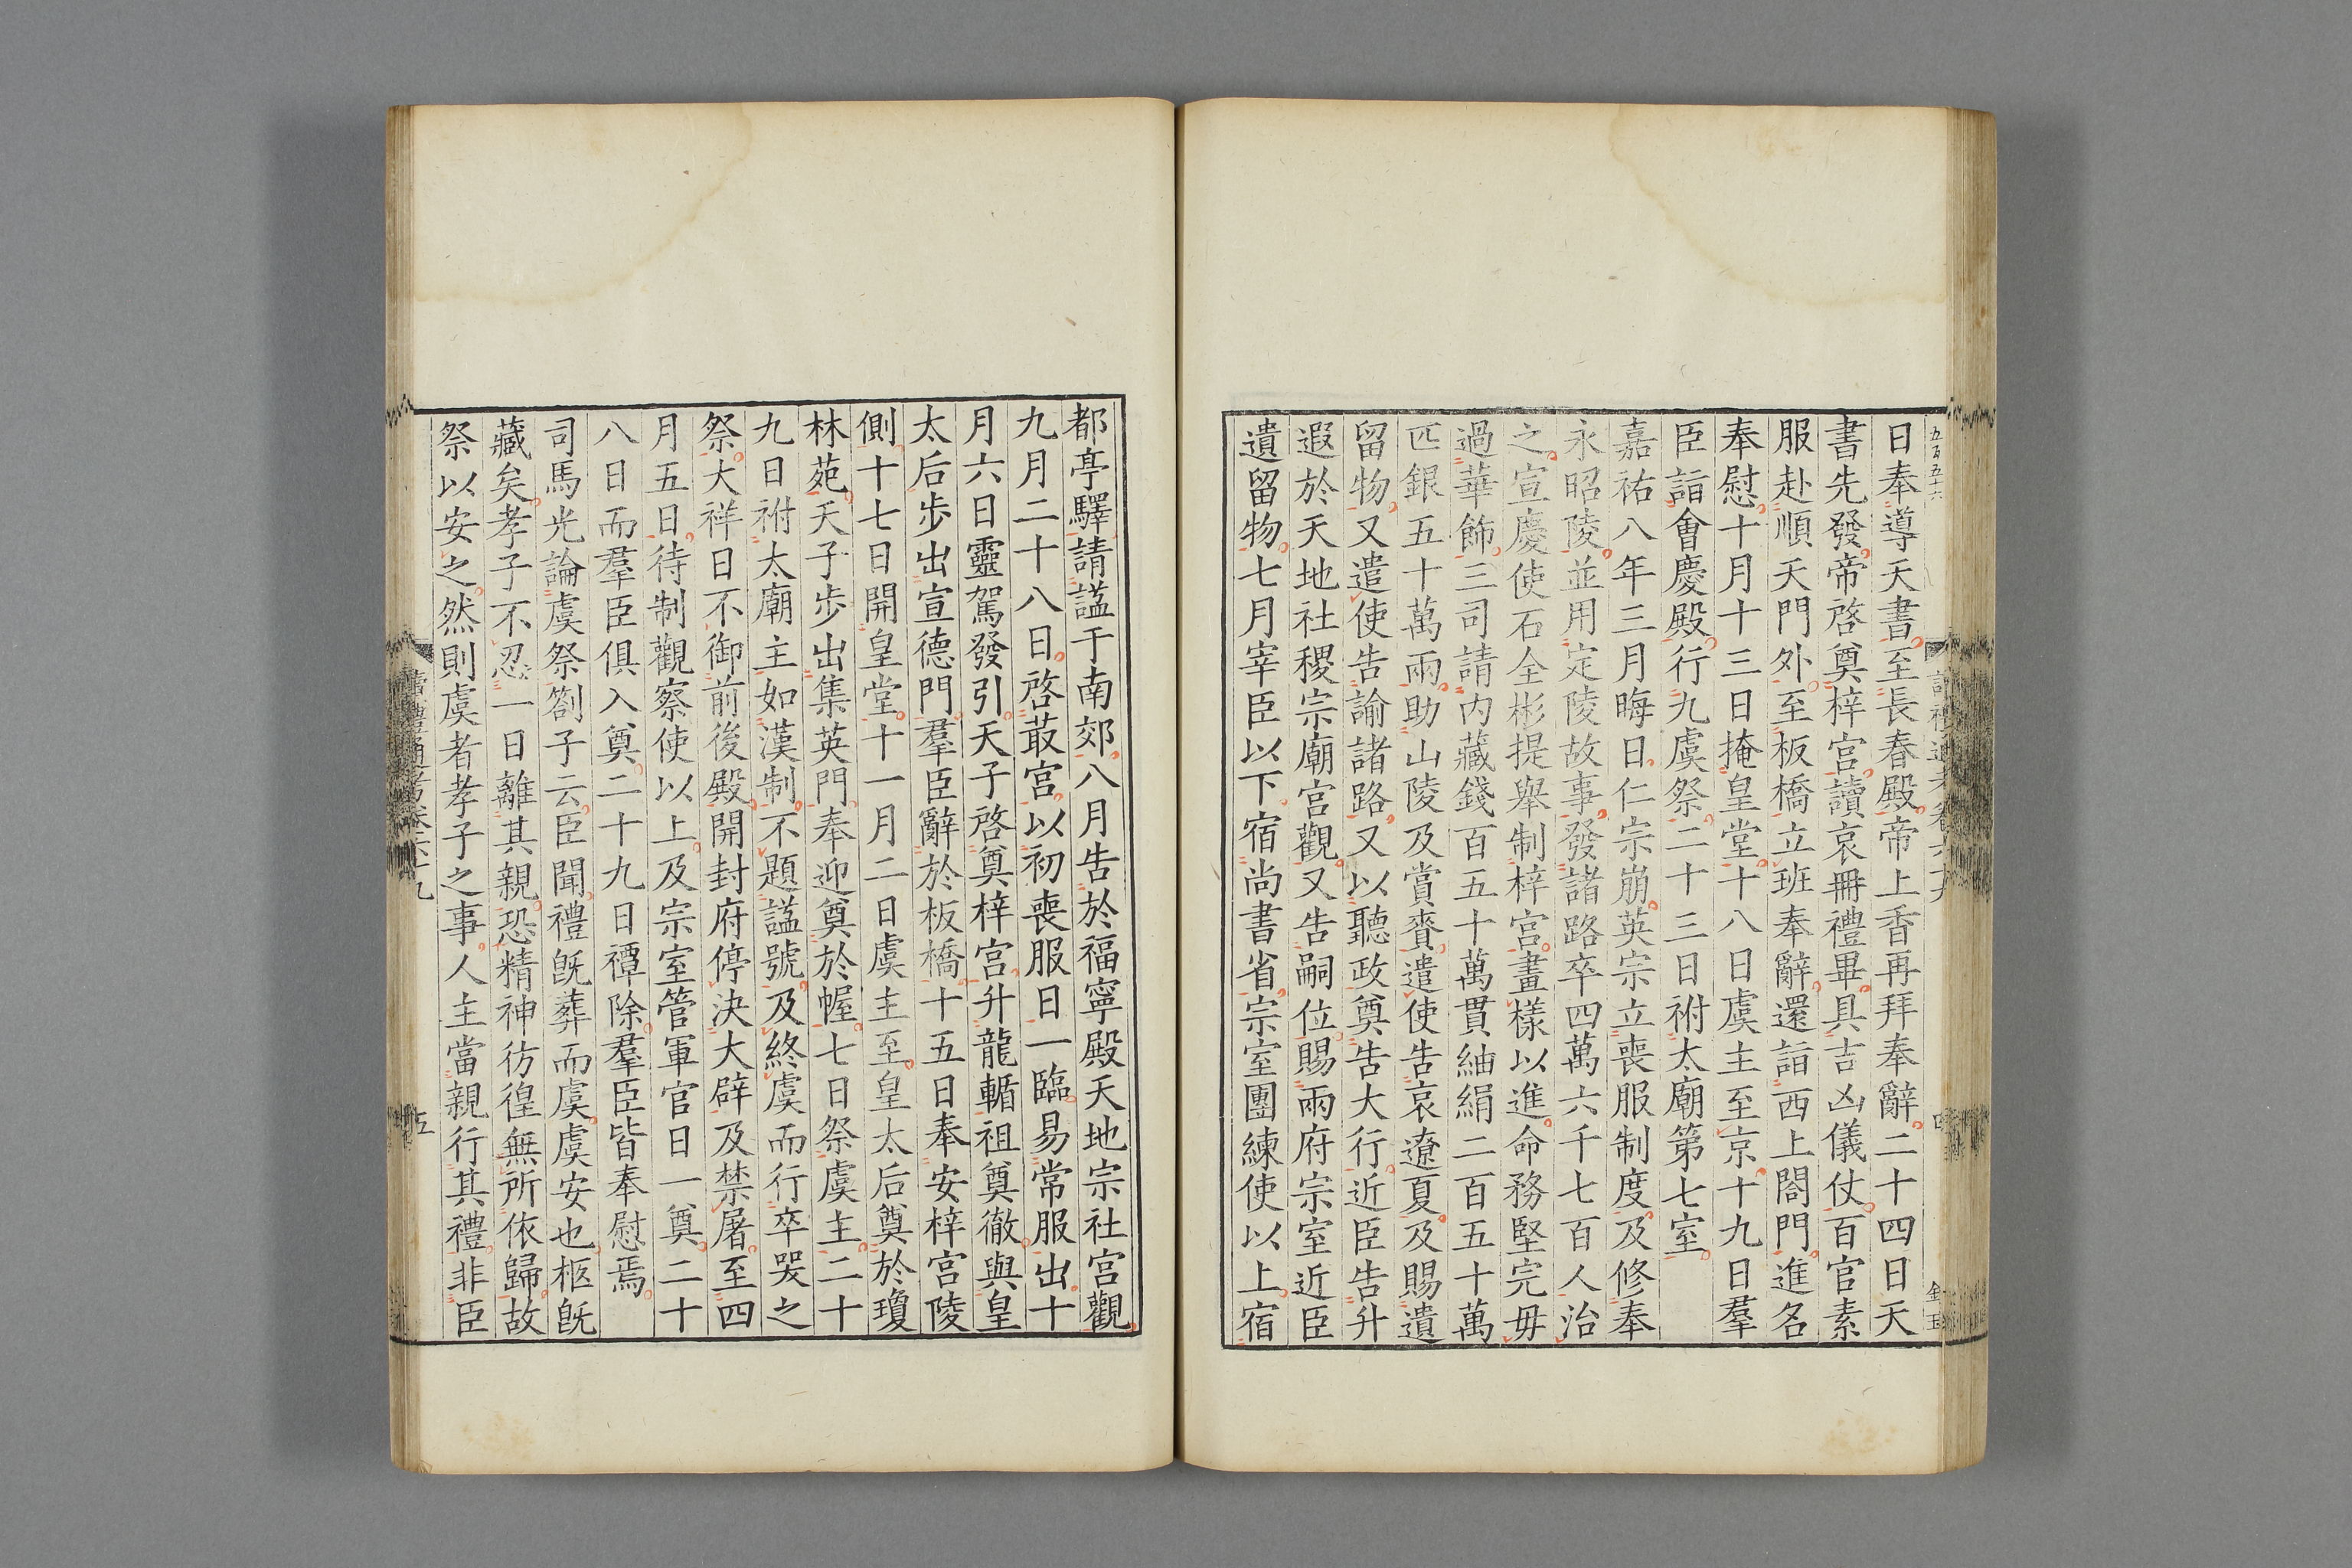 五百五十六
讀禮通考卷六十九
四
日奉導天書至長春殿帝上香再拜奉辭二十四日天
書先發帝啓奠梓宮讀哀冊禮畢具吉凶儀仗百官素
服赴順天門外至板橋立班奉辭還詣西上閤門進名
奉慰十月十三日掩皇堂十八日虞主至京十九日羣
臣詣會慶殿行九虞祭二十三日祔太廟第七室
嘉祐八年三月晦日仁宗崩英宗立喪服制度及修奉
永昭陵並用定陵故事發諸路卒四萬六千七百人治
之宣慶使石全彬提舉制梓宮畫樣以進命務堅完毋
過華飾三司請內藏錢百五十萬貫紬絹二百五十萬
匹銀五十萬兩助山陵及賞賚遣使告哀遼夏及賜遺
留物又遣使告諭諸路又以聽政奠告大行近臣告升
遐於天地社稷宗廟宮觀又告嗣位賜兩府宗室近臣
遺留物七月宰臣以下宿尚書省宗室團練使以上宿
都亭驛請諡于南郊八月告於福寧殿天地宗社宮觀
九月二十八日啓菆宮以初喪服日一臨易常服出十
月六日靈駕發引天子啓奠梓宮升龍輴祖奠徹與皇
太后步出宣德門羣臣辭於板橋十五日奉安梓宮陵
側十七日開皇堂十一月二日虞主至皇太后奠於瓊
林苑天子步出集英門奉迎奠於幄七日祭虞主二十
九日祔太廟主如漢制不題諡號及終虞而行卒哭之
祭大祥日不御前後殿開封府停決大辟及禁屠至四
月五日待制觀察使以上及宗室管軍官日一奠二十
八日而羣臣俱入奠二十九日禫除羣臣皆奉慰焉
司馬光論虞祭劄子云臣聞禮旣葬而虞虞安也柩旣
藏矣孝子不忍一日離其親恐精神彷徨無所依歸故
祭以安之然則虞者孝子之事人主當親行其禮非臣
讀禮通考卷六十九
五